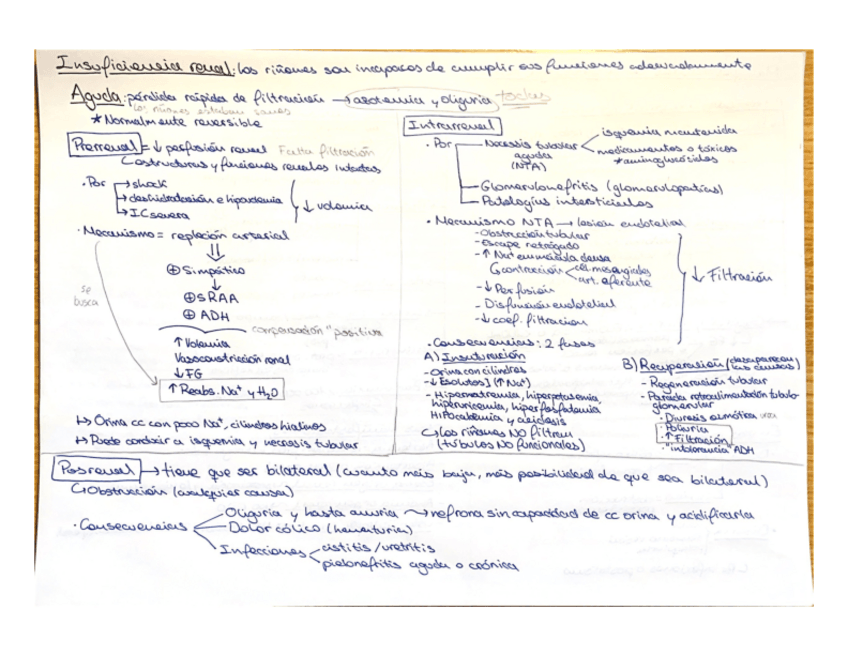 Insuficiencia renal: los riñones son incapaces de cumplir sus funciones adecuadamente
Aguda: pérdida rápida de filtración → azotemia y oliguria todas
los riñones estaban sanos
* Normalmente reversible
Prerrenal = ↓ perfusión renal Falta filtración
↳ estructuras y funciones renales intactas
· Por → shock
→ deshidratación e hipovolemia
→ IC severa
↓ volemia
· Mecanismo = repleción arterial
⇓
⊕ Simpático
↓
⊕ SRAA
⊕ ADH
compensación "positiva"
se busca
↑ Volemia
Vasoconstricción renal
↓ FG
↑ Reabs. Na⁺ y H₂O
↦ Orina cc con poco Na⁺, cilindros hialinos
↦ Puede conducir a isquemia y necrosis tubular
Intrarrenal
· Por
Necrosis tubular aguda (NTA)
isquemia mantenida
medicamentos o tóxicos
* aminoglucósidos
Glomerulonefritis (glomerulopatías)
Patologías intersticiales
· Mecanismo NTA → lesión endotelial
- Obstrucción tubular
- Escape retrógado
- ↑ Na⁺ en mácula densa
↳ contracción
cél. mesangiales
art. aferente
- ↓ Perfusión
- Disfunción endotelial
- ↓ coef. filtración
↓ Filtración
· Consecuencias: 2 fases
A) Instauración
- Orina con cilindros
- ↓ [solutos] (↑ Na⁺)
- Hipernatremia, hiperpotasemia,
hiperuricemia, hiperfosfatemia
Hipocalcemia y acidosis
↳ los riñones NO filtran
(túbulos NO funcionales)
B) Recuperación (desaparecen las causas)
- Regeneración tubular
- Parada retroalimentación tubulo-
glomerular
- Diuresis osmótica urea
· Poliuria
· ↑ Filtración
· "intolerancia" ADH
Posrenal → tiene que ser bilateral (cuanto más baja, más posibilidad de que sea bilateral)
↳ Obstrucción (cualquier causa)
· Consecuencias
Oliguria y hasta anuria → nefrona sin capacidad de cc orina y acidificarla
Dolor cólico (hematuria)
Infecciones
cistitis / uretritis
pielonefritis aguda o crónica